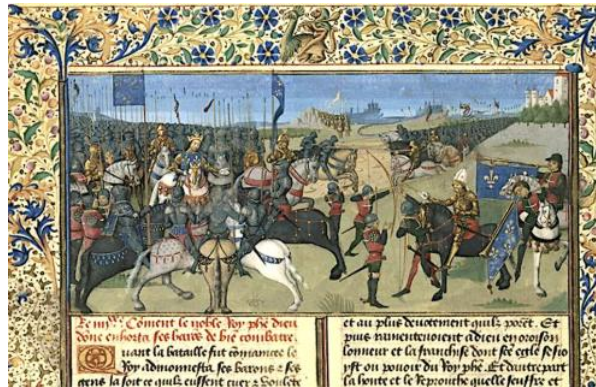 Coment le noble Roy phe dieu
done enhorta ses barōs de biē combatre.
Quant la bataille fut cōmancee le
Roy admonnesta ses barons & ses
gens la soit ce quilz eussent cuer & voulēte
et au plus deuotement quilz porēt. Et
puis ramenteuoient a dieu en oroison
lonneur et la franchise dont sō eglē sesio
yst ou pouoir du Roy phe. Et dautre part
la honte et le Reprouche quelle souffre et